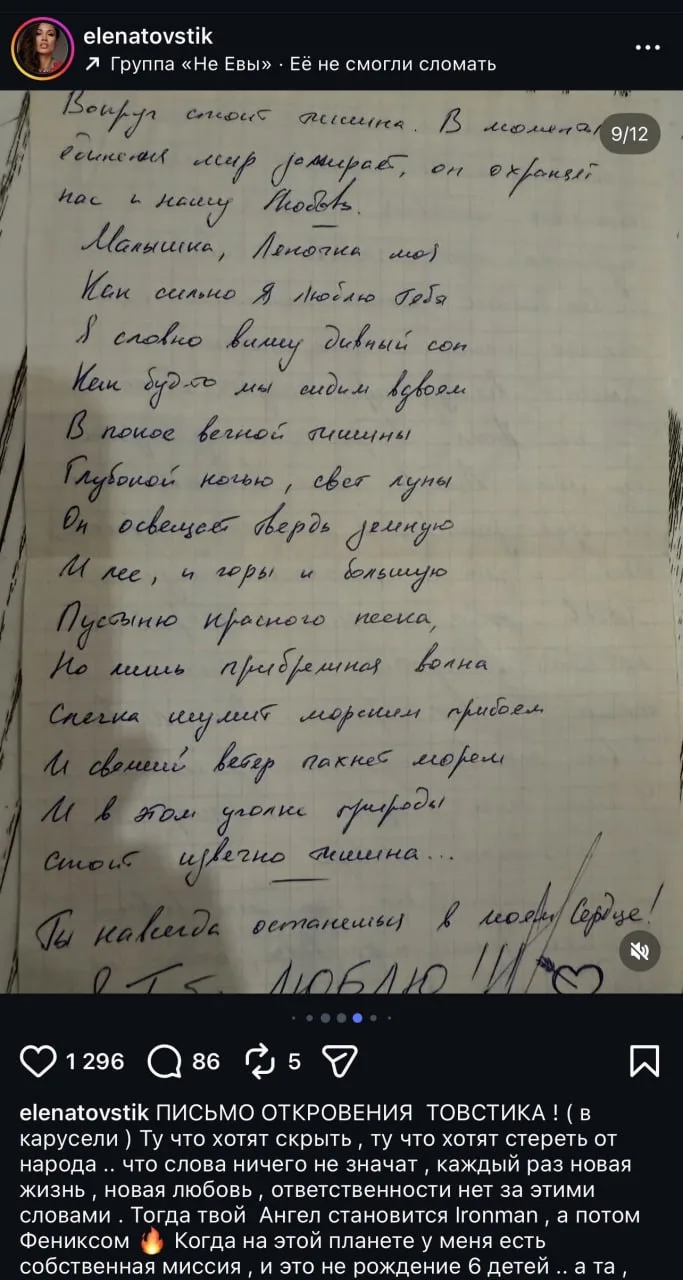 elenatovstik
Группа «Не Евы» · Её не смогли сломать
9/12
Вокруг стоит тишина. В момент
единения мир замирает, он охраняет
нас и нашу Любовь.
Малышка, Леночка моя
Как сильно Я Люблю Тебя
Я словно вижу дивный сон
Как будто мы сидим вдвоем
В покое вечной тишины
Глубокой ночью, свет луны
Он освещает твердь земную
И лес, и горы и большую
Пустыню красного песка,
Но лишь прибрежная волна
Слегка шумит морским прибоем
И свежий ветер пахнет морем
И в этом уголке природы
Стоит извечно тишина...
Ты навсегда останешься в моем Сердце!
ЛЮБЛЮ!!!
1 296 86 5
elenatovstik ПИСЬМО ОТКРОВЕНИЯ ТОВСТИКА ! ( в
карусели ) Ту что хотят скрыть , ту что хотят стереть от
народа .. что слова ничего не значат , каждый раз новая
жизнь , новая любовь , ответственности нет за этими
словами . Тогда твой Ангел становится Ironman , а потом
Фениксом 🔥 Когда на этой планете у меня есть
собственная миссия , и это не рождение 6 детей .. а та ,